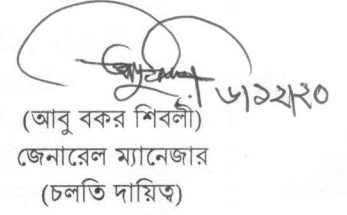 ৬/১২/২০
(আবু বকর শিবলী)
জেনারেল ম্যানেজার
(চলতি দায়িত্ব)